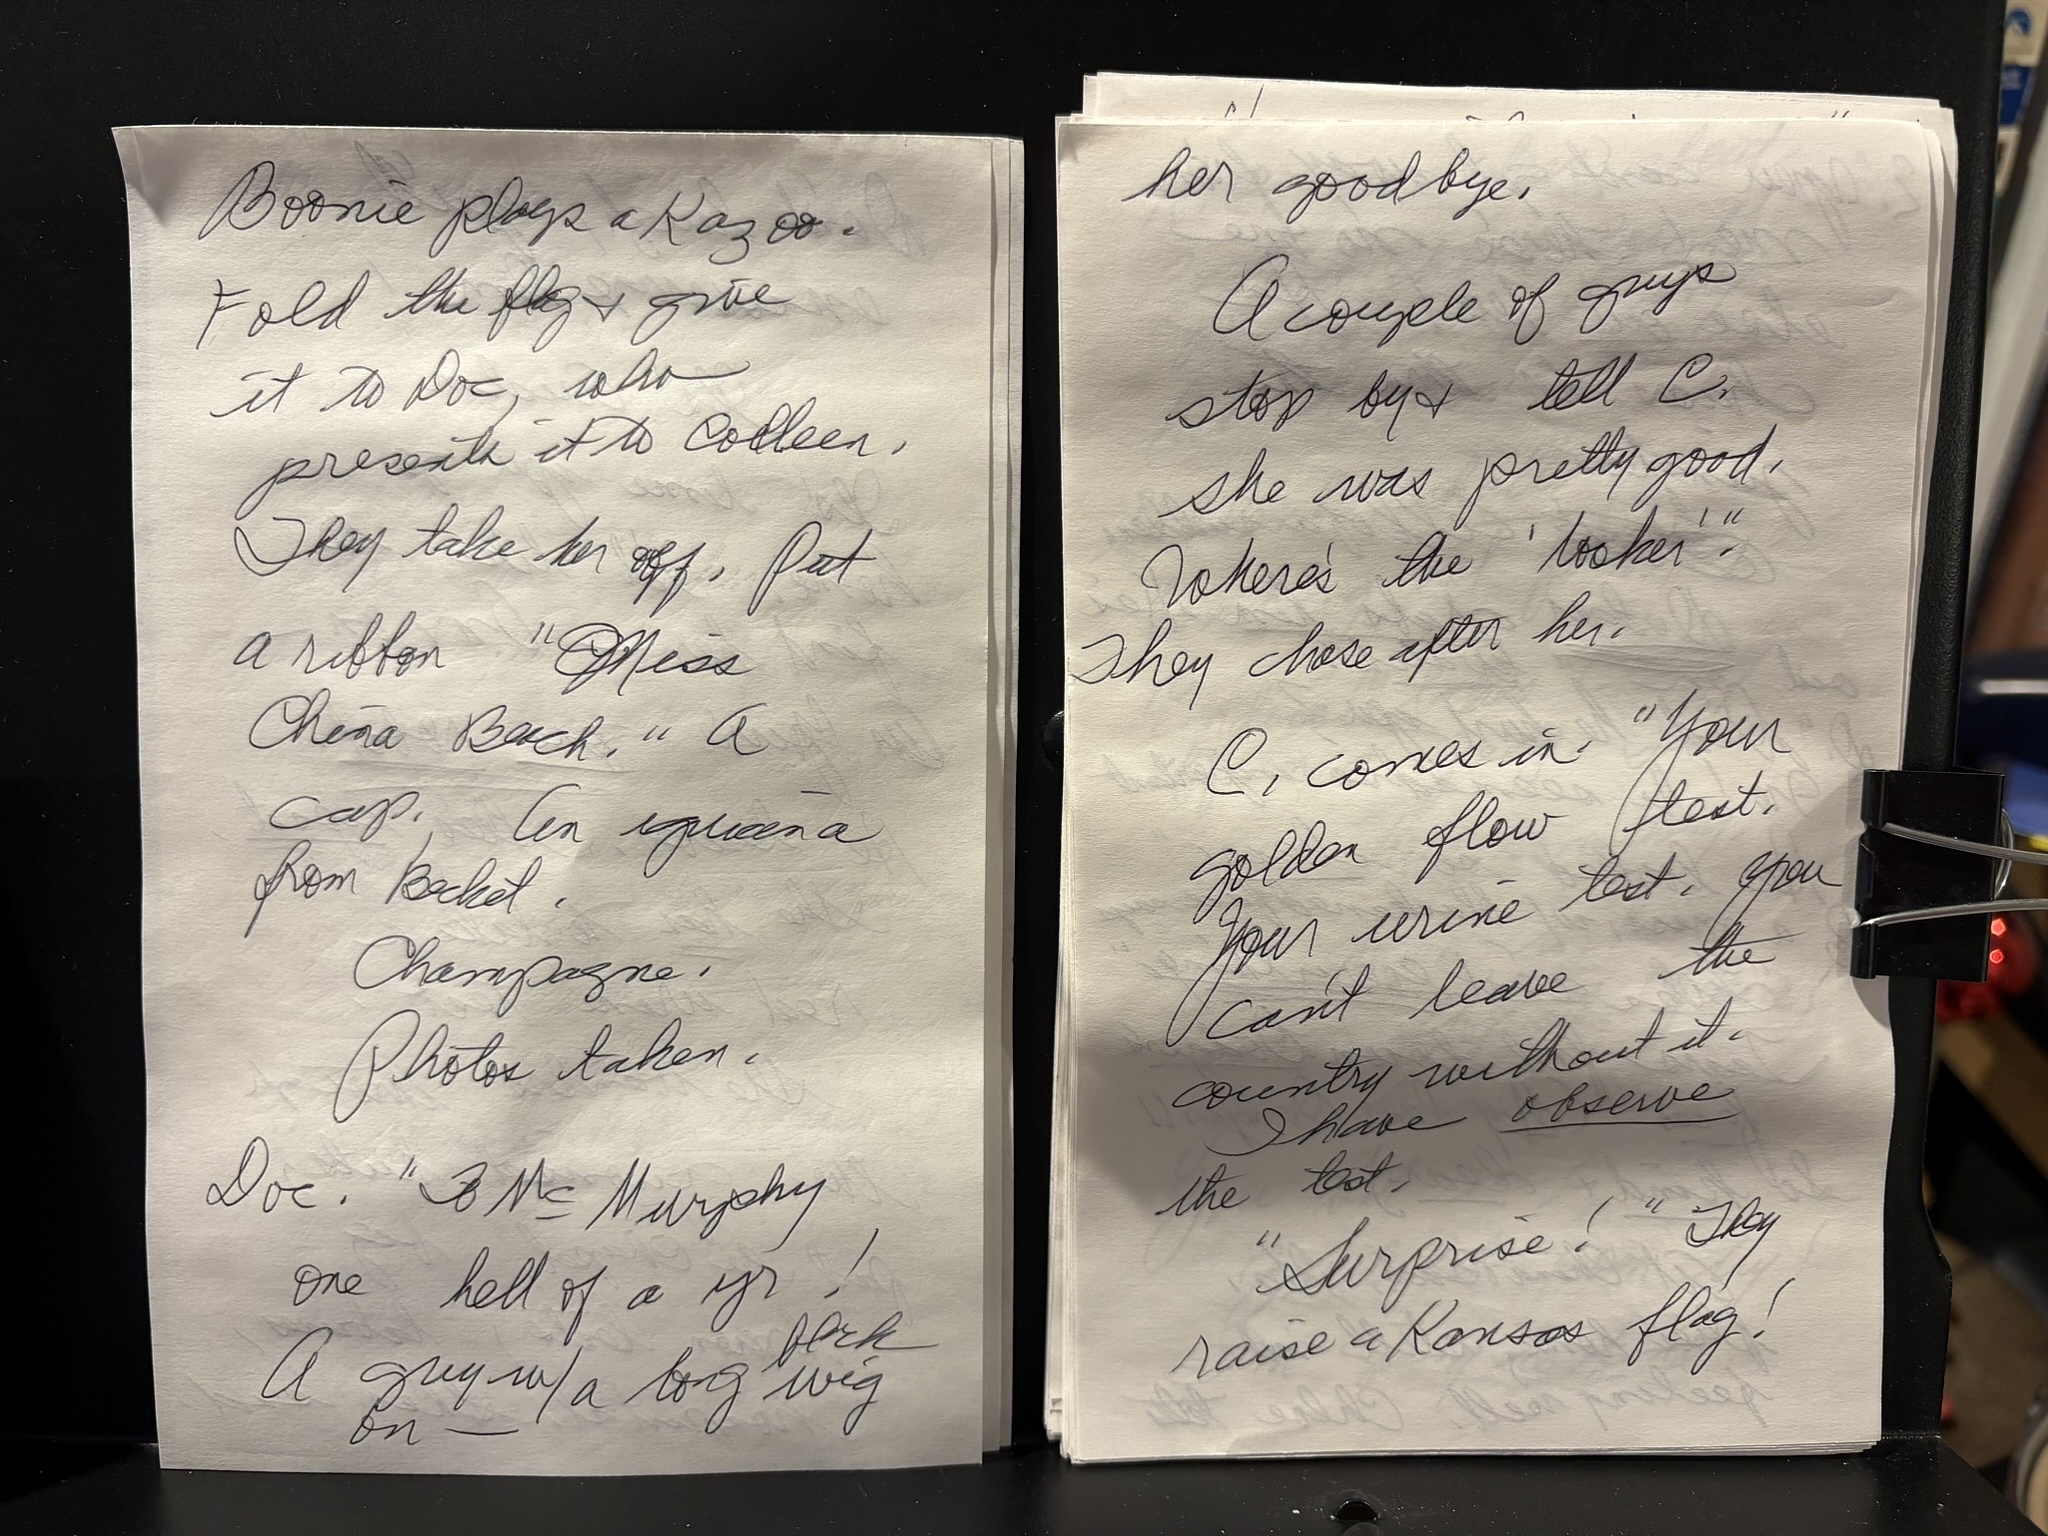 Boonie plays a Kazoo.
Fold the flag & give
it to Doc, who
presents it to Colleen.
They take her off. Put
a ribbon "Miss
China Beach." A
cap. An iguana
from Becket.
Champagne.
Photos taken.
Doc. "To McMurphy
one hell of a yr!
A guy w/a long blck wig
on —
her goodbye.
A couple of guys
stop by & tell C.
she was pretty good.
Where's the 'looker'."
They chase after her.
C. comes in. "Your
golden flow test.
Your urine test. You
can't leave the
country without it.
I have observe
the test.
"Surprise!" They
raise a Kansas flag!